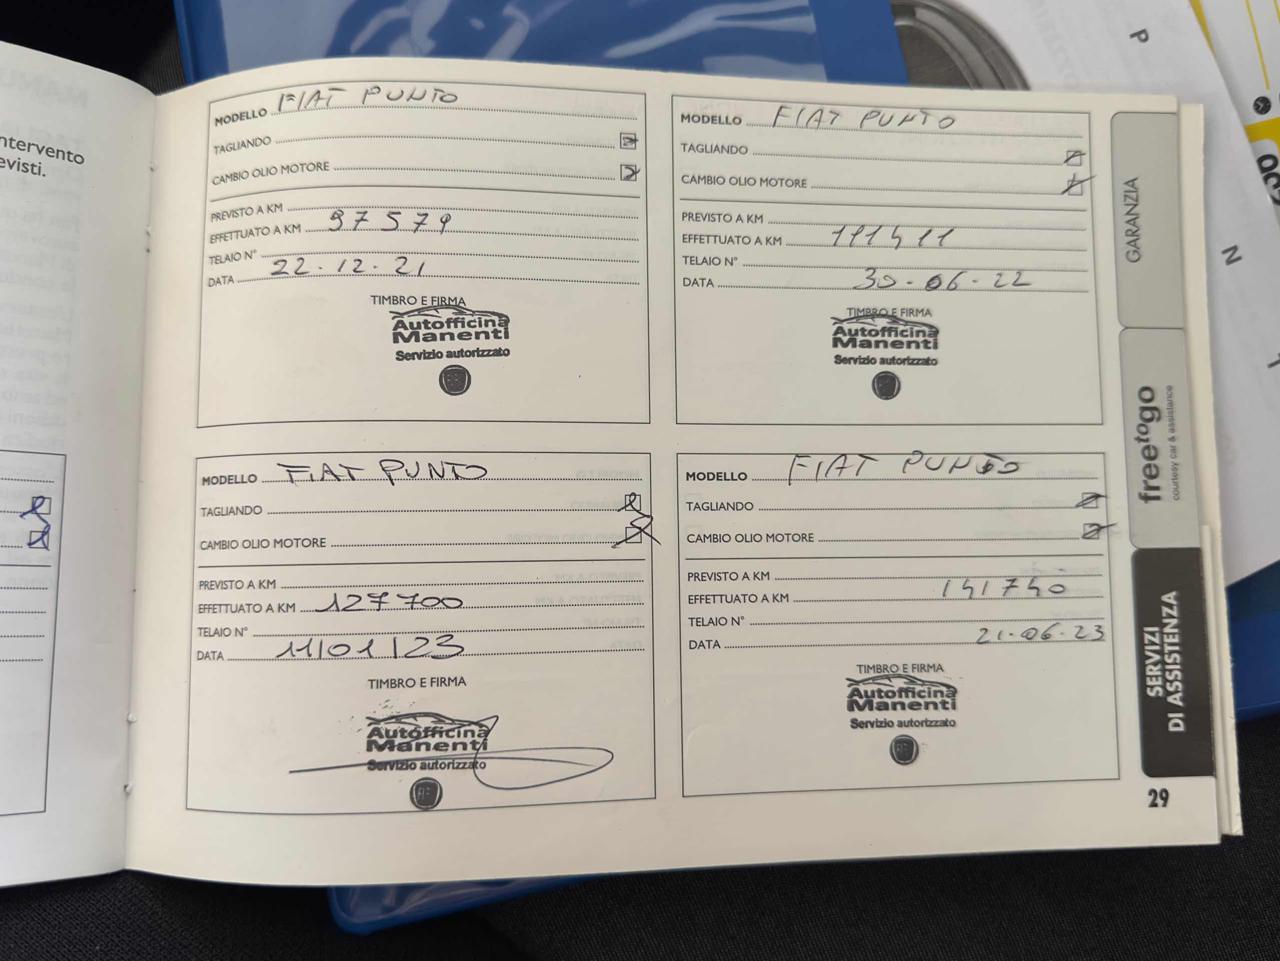 ntervento
evisti.
MODELLO FIAT PUNTO
TAGLIANDO
CAMBIO OLIO MOTORE
PREVISTO A KM
EFFETTUATO A KM 97579
TELAIO N°
DATA 22.12.21
TIMBRO E FIRMA
Autofficina
Manenti
Servizio autorizzato
MODELLO FIAT PUNTO
TAGLIANDO
CAMBIO OLIO MOTORE
PREVISTO A KM
EFFETTUATO A KM 111411
TELAIO N°
DATA 30-06-22
TIMBRO E FIRMA
Autofficina
Manenti
Servizio autorizzato
MODELLO FIAT PUNTO
TAGLIANDO
CAMBIO OLIO MOTORE
PREVISTO A KM
EFFETTUATO A KM 127700
TELAIO N°
DATA 11/01/23
TIMBRO E FIRMA
Autofficina
Manenti
Servizio autorizzato
MODELLO FIAT PUNTO
TAGLIANDO
CAMBIO OLIO MOTORE
PREVISTO A KM
EFFETTUATO A KM 141740
TELAIO N°
DATA 21.06.23
TIMBRO E FIRMA
Autofficina
Manenti
Servizio autorizzato
GARANZIA
freetogo
courtesy car & assistance
SERVIZI
DI ASSISTENZA
29
P
N